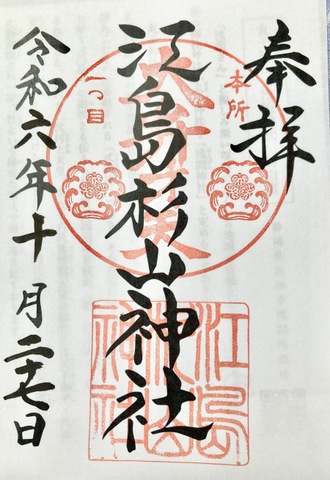 奉拝
本所
江島杉山神社
一つ目
令和六年十月二十七日
江島
杉山
神社